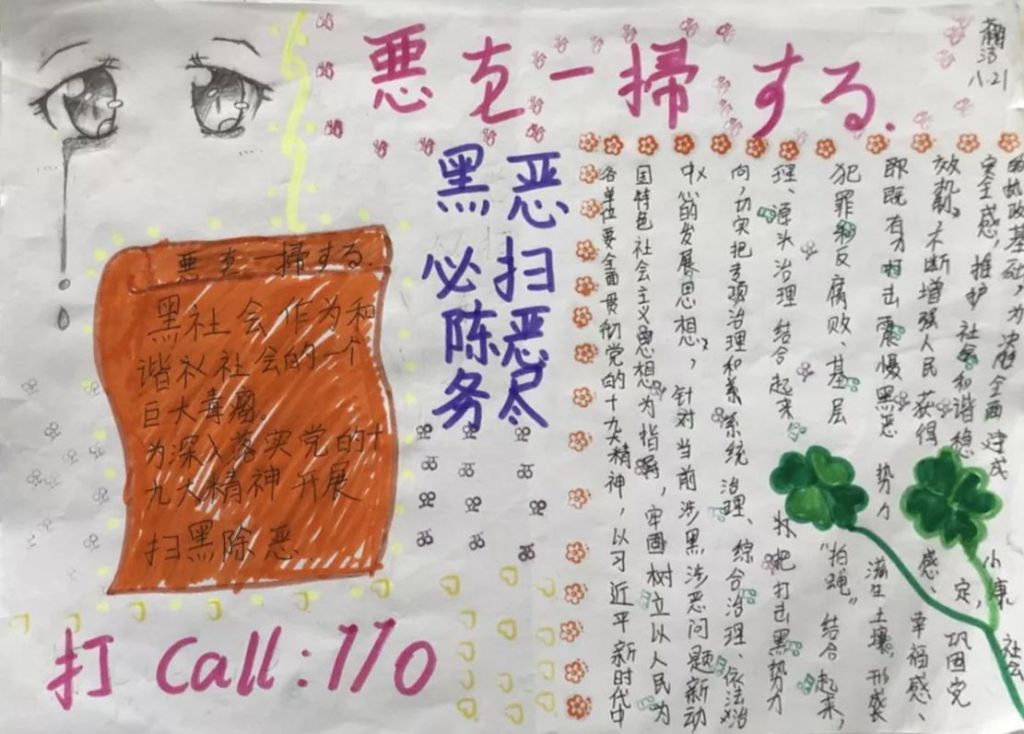 悪を一掃する.
8.21
黑恶
必扫
除恶
务尽
悪を一掃する.
黑社会作为和
谐社会的一个
巨大毒瘤.
为深入落实党的十
九大精神开展
扫黑除恶
打 call:110
各单位要全面贯彻党的十九大精神,以习近平新时代中
国特色社会主义思想为指导,牢固树立以人民为
中心的发展思想,针对当前涉黑涉恶问题新动
向,切实把专项治理和系统治理、综合治理、依法治
理、源头治理 结合起来, 把打击黑势力
犯罪和反腐败、基层 "拍蝇" 结合起来,
既有力打击震慑黑恶 势力 滋生土壤,形成
不断增强人民 获得 感、幸福感、
安全感,维护 社会和谐稳 定,巩固党
的执政基础,为决胜全面建成 小康 社会